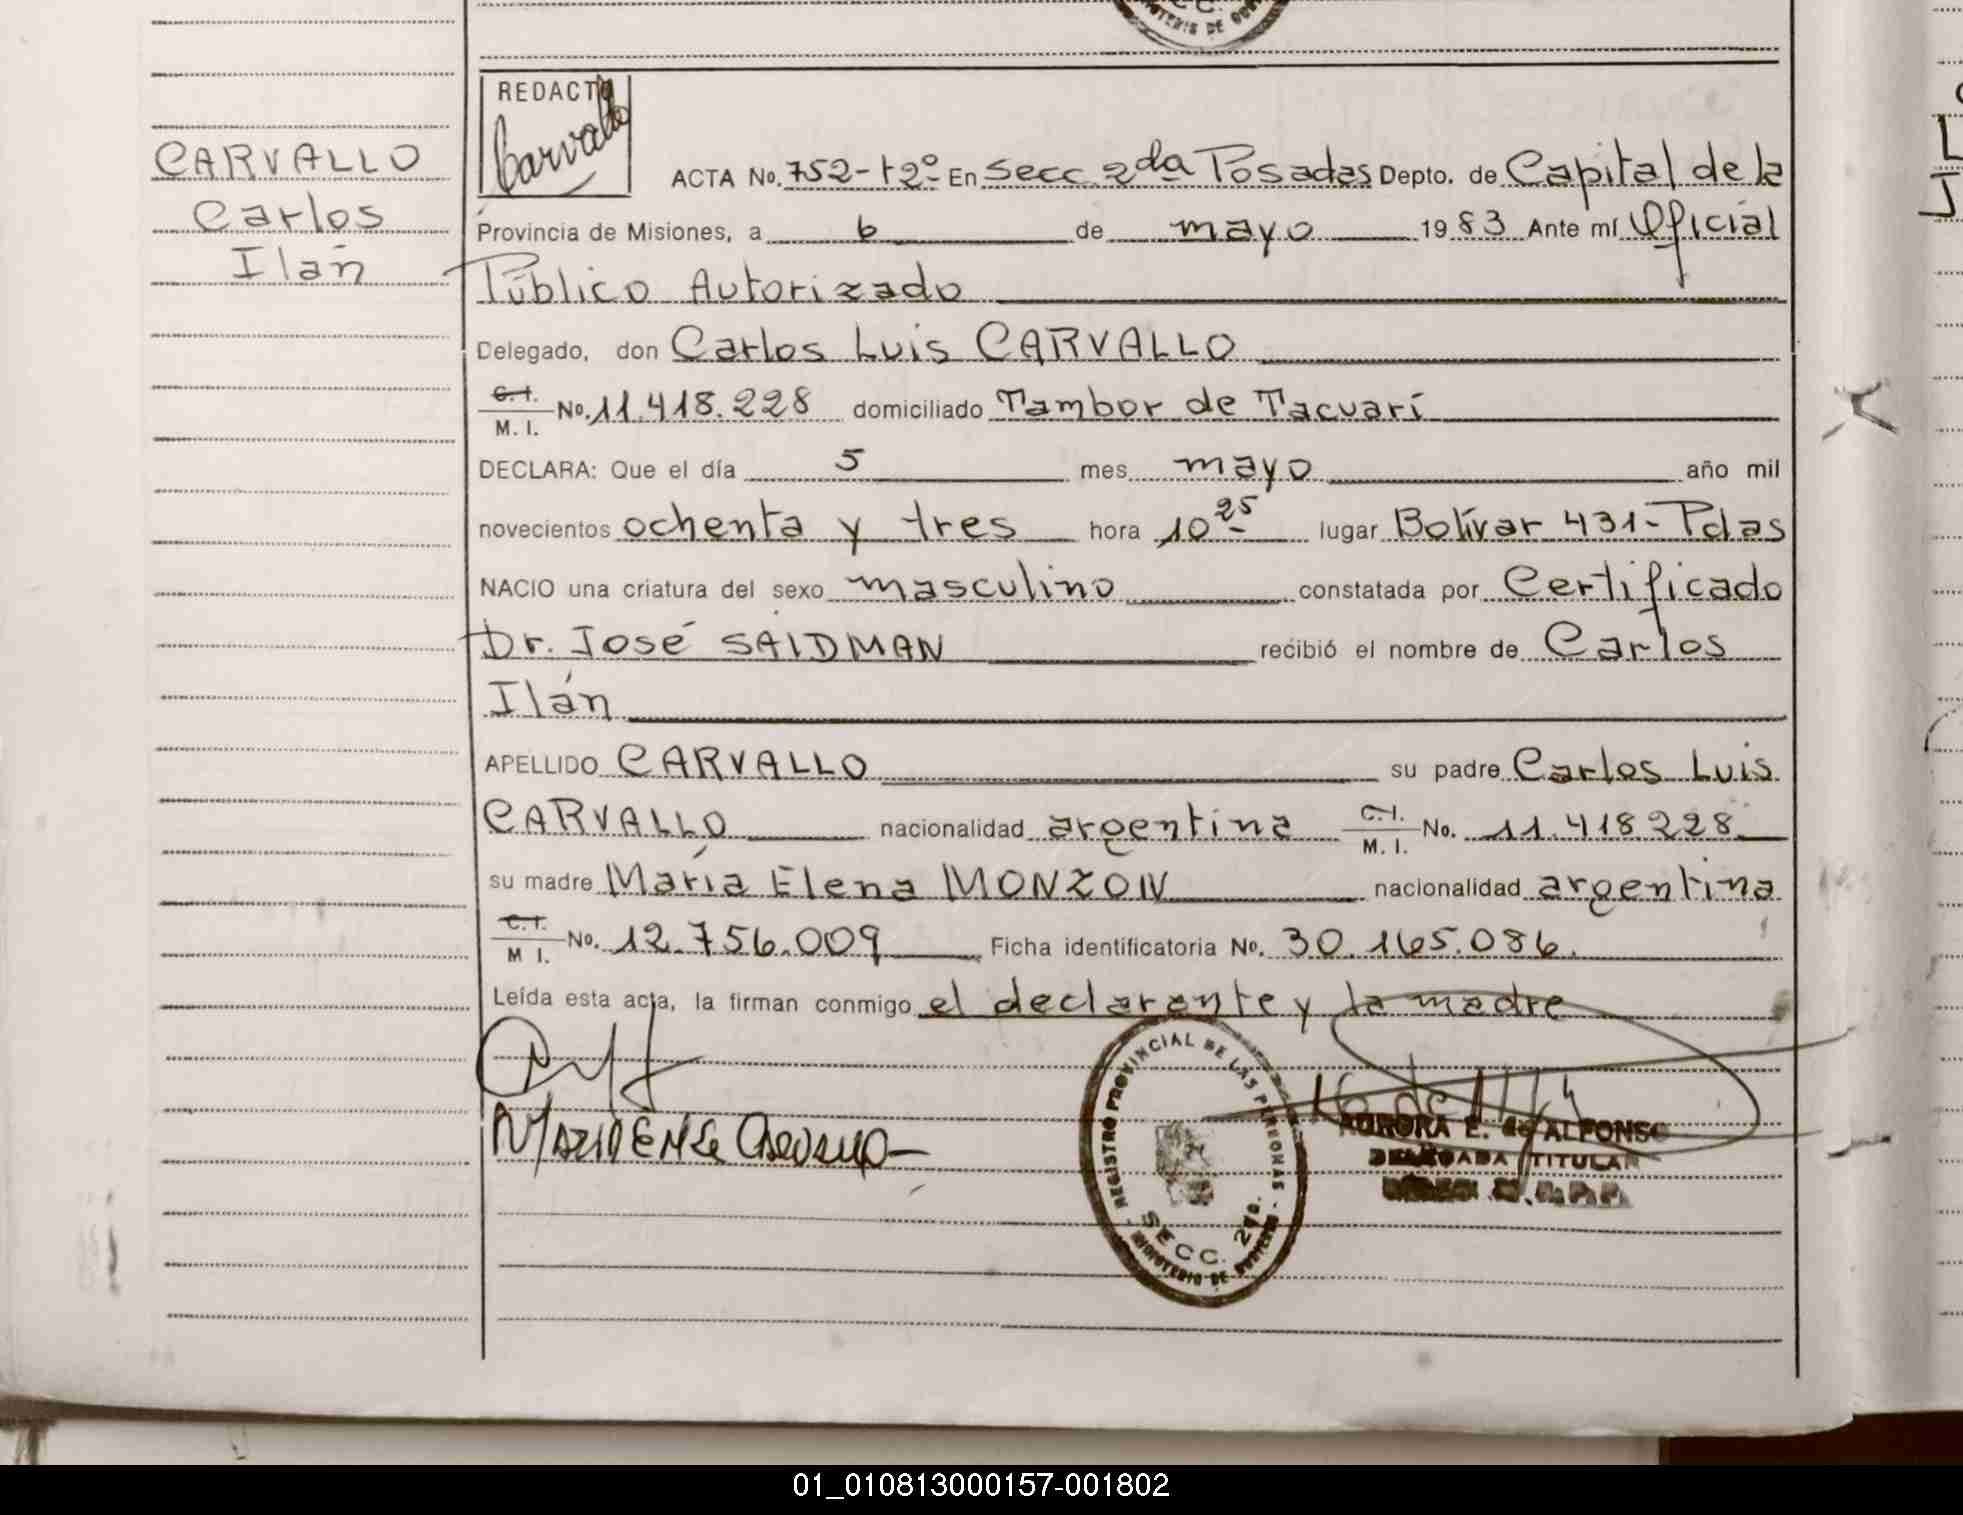 REDACTO
Carvallo
CARVALLO
Carlos
Ilán
ACTA No. 752-t2º En Secc. 2da Posadas Depto. de Capital de la
Provincia de Misiones, a 6 de mayo 1983 Ante mí Oficial
Público Autorizado
Delegado, don Carlos Luis CARVALLO
C.I. M. I. No. 11.418.228 domiciliado Tambor de Tacuarí
DECLARA: Que el día 5 mes mayo año mil
novecientos ochenta y tres hora 10 25 lugar Bolívar 431- Pdas
NACIO una criatura del sexo masculino constatada por Certificado
Dr. José SAIDMAN recibió el nombre de Carlos
Ilán
APELLIDO CARVALLO su padre Carlos Luis
CARVALLO nacionalidad argentina C.I. M. I. No. 11.418.228
su madre María Elena MONZON nacionalidad argentina
C.I. M I. No. 12.756.009 Ficha identificatoria No. 30.165.086.
Leída esta acta, la firman conmigo el declarante y la madre
REGISTRO PROVINCIAL DE LAS PERSONAS
SECC. 2da.
MINISTERIO DE GOBIERNO
AURORA E. de ALFONSO
DELEGADA TITULAR
01_010813000157-001802